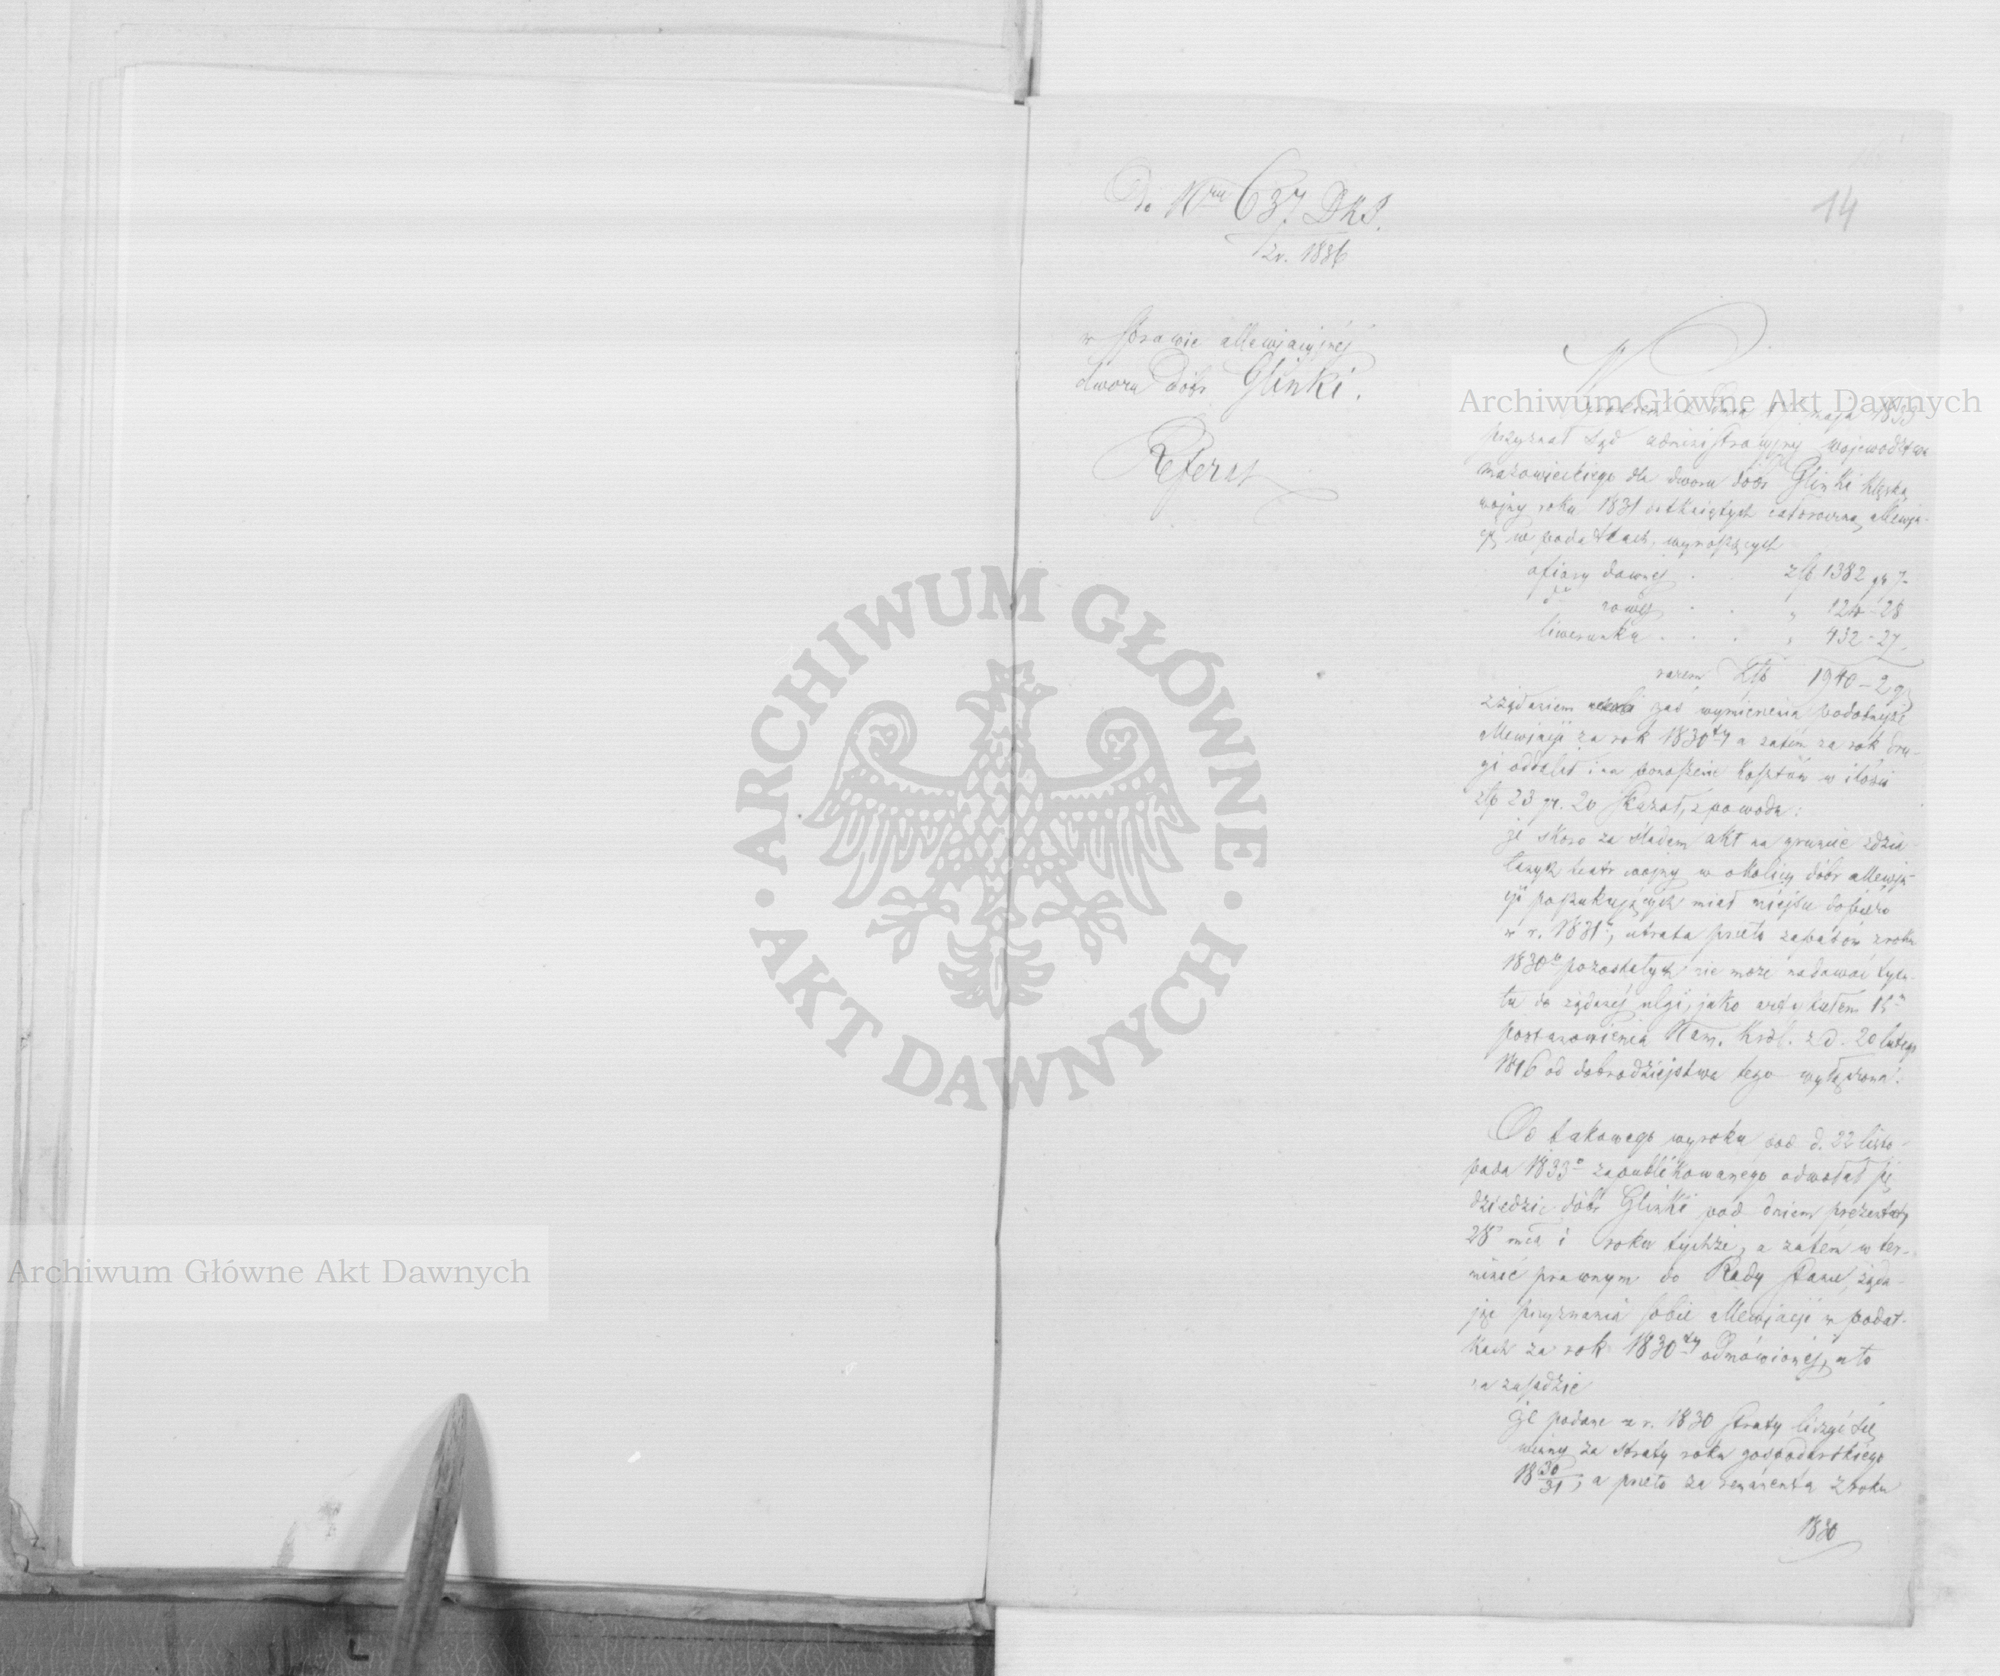 14
Do Nru 637 DKS.
z r. 1836
w sprawie allewjacyjnéj
dworu dóbr Glinki.
Referat
Wyrokiem z dnia maja 1833
przyznał Sąd administracyjny województwa
mazowieckiego dla dworu dóbr Glinki klęską
wojny roku 1831 dotkniętych allewja-
cję w podatkach, wynoszących
ofiary dawnej . . złp. 1382 gr 7-
do nowej . . " 124-28
liwerunku . . . " 432-27.
razem Złp 1940-2 gr
z żądaniem zaś wymierzenia podobnejże
allewjacji za rok 1830ty a zatém za rok dru-
gi oddalił i na ponoszenie kosztów w ilości
złp 23 gr. 20 skazał, z powodu:
że skoro za śladem akt na gruncie zdzia-
łanych teatr wojny w okolicy dóbr allewja-
cji poszukujących miał miejsce dopiero
w r. 1831o, utrata przeto zapasów z roku
1830o pozostałych nie może nadawać tytu-
łu do żądanej ulgi, jako artykułem 15m
postanowienia Nam. Król. z d. 20 lutego
1816 od dobrodziejstwa tego wyłączona.
Od takowego wyroku pod d. 22 listo-
pada 1833o zapublikowanego odwołał się
dziedzic dóbr Glinki pod dniem prezentaty
28 mca i roku tychże, a zatém w ter-
minie prawnym do Rady Stanu, żąda-
jąc przyznania sobie allewjacji w podat-
kach za rok 1830ty odmówionej, a to
na zasadzie
że podane z r. 1830 straty liczyć się
winny za straty roku gospodarskiego
18 30/31, a przeto za remanenta z roku
1830
Archiwum Główne Akt Dawnych
Archiwum Główne Akt Dawnych
ARCHIWUM GŁÓWNE
AKT DAWNYCH